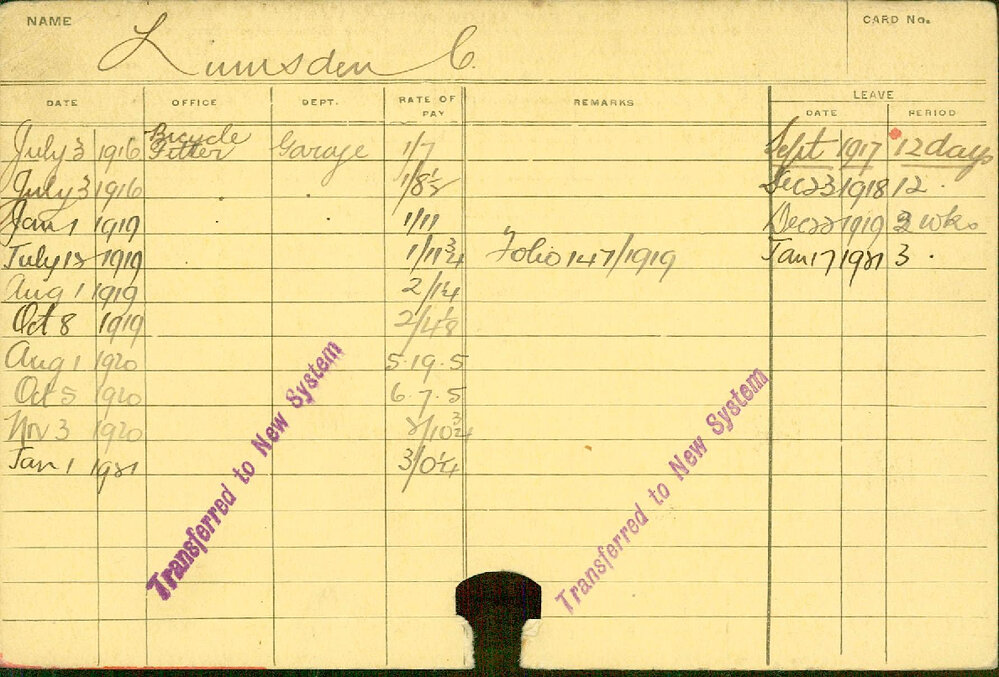 NAME CARD No.
Lumsden C.
DATE OFFICE DEPT. RATE OF PAY REMARKS LEAVE
DATE PERIOD
July 3 1916 Bicycle Fitter Garage 1/7 Sept 1917 12 days
July 3 1916 . . 1/8½ Dec 23 1918 12 .
Jan 1 1919 . . 1/11 Dec 22 1919 2 wks
July 12 1919 1/11¾ Folio 147/1919 Jan 17 1921 3 .
Aug 1 1919
Oct 8 1919
Aug 1 1920 5.19.5
Oct 5 1920 6.7.5
Nov 3 1920 2/10¾
Jan 1 1921 3/0¼
Transferred to New System
Transferred to New System